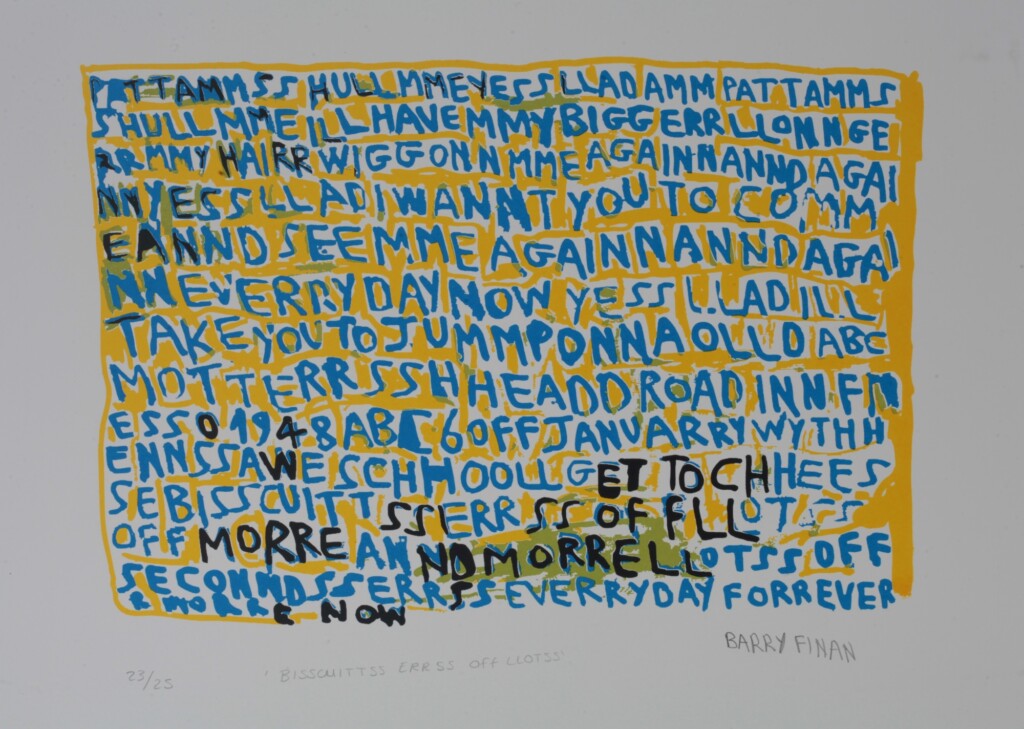 PATTAMMSS HULLMMEYESSLLADAMMPATTAMMS
SHULLMMEILLHAVEMMYBIGGERRLLONNGE
RRMMYHAIRRWIGGONNMMEAGAINNANNDAGAI
NNYESSLLADIWANNTYOUTOCOMM
EANNNDSEEMMEAGAINNANNDAGAI
NNEVERRYDAYNOWYESSLLADILL
TAKEYOUTOJUMMPONNAOLLDABC
MOTTERRSSHHEADDROADINNFM
ESSO1948ABC6OFFJANUARRYWYTHH
ENNSSAWESCHHOOLLGETTOCHHEES
SEBISSCUITTSSIERRSSOFFLLOTSS
OFFMORREANNDMORRELLOTSSOFF
SECONNDSSERRSSEVERRYDAYFORREVER
RMORRENOW
23/25 'BISSCUITTSS ERRSS OFF LLOTSS' BARRY FINAN